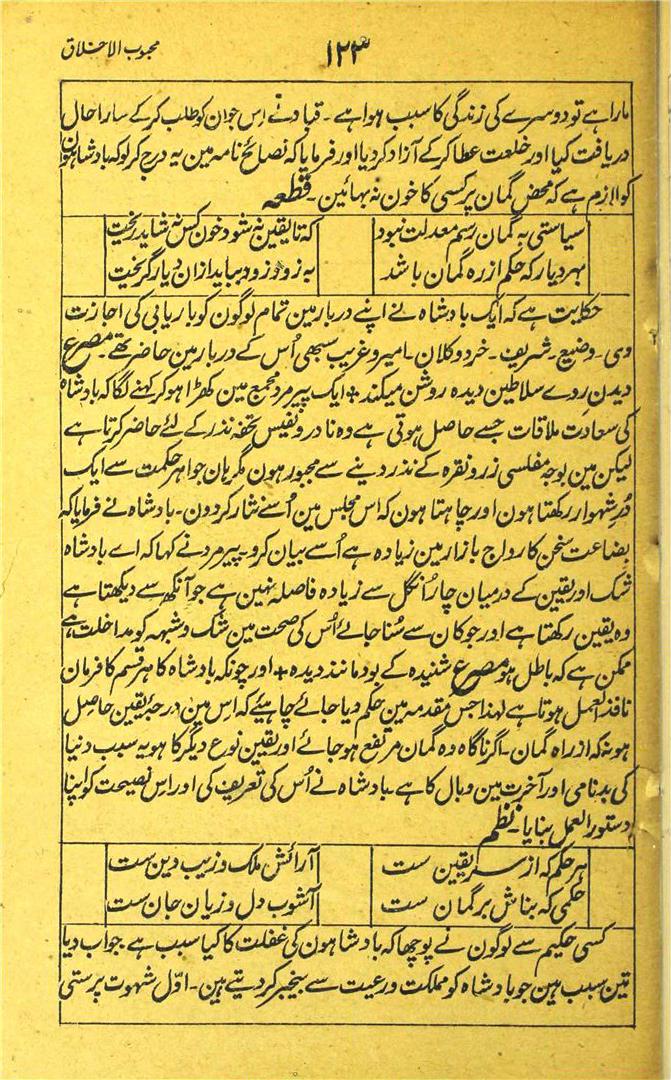 محبوب الاخلاق
۱۲۳
مارا ہے تو دوسرے کی زندگی کا سبب ہوا ہے ۔ قباد نے اس جوان کو طلب کر کے سارا حال
دریافت کیا اور خلعت عطا کر کے آزاد کر دیا اور فرمایا کہ نصائح نامہ مین یہ درج کر لو کہ بادشاہون
کو لازم ہے کہ محض گمان پر کسی کا خون نہ بہائین ۔ قطعہ
سیاستی بہ گمان رسم معدلت نبود
کہ تا یقین نہ شود خون کس نہ شاید ریخت
بہر دیار کہ حکم از رہ گمان باشد
بہ زود زود بباید ازان دیار گریخت
حکایت ہے کہ ایک بادشاہ نے اپنے دربار مین تمام لوگون کو باریابی کی اجازت
دی ۔ وضیع ۔ شریف ۔ خرد و کلان ۔ امیر و غریب سبھی اُس کے دربار مین حاضر تھے ۔ مصرع
دیدن روے سلاطین دیدہ روشن میکند + ایک پیر مرد مجمع مین کھڑا ہو کر کہنے لگا کہ بادشاہ
کی سعادت ملاقات جسے حاصل ہوتی ہے وہ نادر و نفیس تحفہ نذر کے لئے حاضر کرتا ہے
لیکن مین بوجہ مفلسی زر و نقرہ کے نذر دینے سے مجبور ہون مگر ہان جواہر حکمت سے ایک
دُرِ شہوار رکھتا ہون اور چاہتا ہون کہ اس مجلس مین اُسے نثار کر دون ۔ بادشاہ نے فرمایا کہ
بضاعت سخن کا رواج بازار مین زیادہ ہے اُسے بیان کرو ۔ پیر مرد نے کہا کہ اے بادشاہ
شک اور یقین کے درمیان چار اُنگل سے زیادہ فاصلہ نہین ہے جو آنکھ سے دیکھتا ہے
وہ یقین رکھتا ہے اور جو کان سے سُنا جائے اُس کی صحت مین شک و شبہہ کو مداخلت ہے
ممکن ہے کہ باطل ہو مصرع شنیدہ کے بود مانند دیدہ + اور چونکہ بادشاہ کا ہر قسم کا فرمان
نافذ العمل ہوتا ہے لہذا جس مقدمہ مین حکم دیا جائے چاہیئے کہ اس مین درجۂ یقین حاصل
ہو نہ کہ از راہ گمان ۔ اگر ناگاہ وہ گمان مرتفع ہو جائے اور یقین نوع دیگر کا ہو یہ سبب دنیا
کی بدنامی اور آخرت مین وبال کا ہے ۔ بادشاہ نے اُس کی تعریف کی اور اس نصیحت کو اپنا
دستور العمل بنایا ۔ نظم
ہر حکم کہ از سر یقین ست
آرائش ملک و زیب دین ست
حکمی کہ بناش بر گمان ست
آشوب دل و زیان جان ست
کسی حکیم سے لوگون نے پوچھا کہ بادشاہون کی غفلت کا کیا سبب ہے جواب دیا
تین سبب ہین جو بادشاہ کو مملکت و رعیت سے بیخبر کر دیتے ہین ۔ اوّل شہوت پرستی